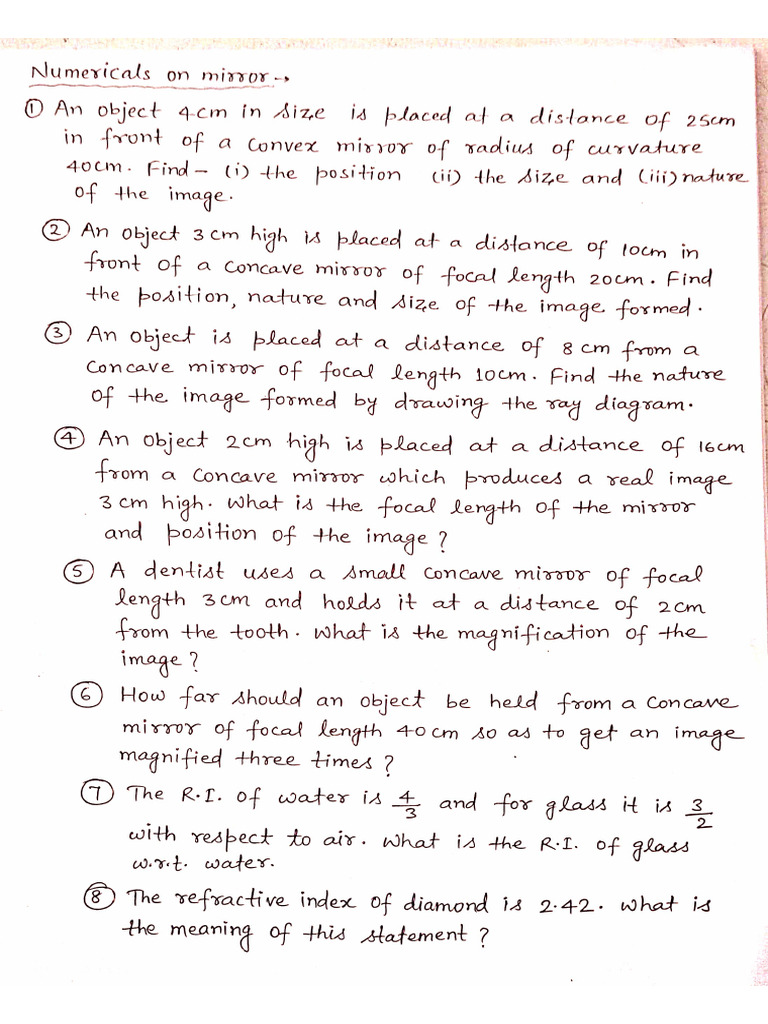 Numericals on mirror→
① An object 4cm in size is placed at a distance of 25cm
in front of a convex mirror of radius of curvature
40cm. Find - (i) the position (ii) the size and (iii) nature
of the image.
② An object 3cm high is placed at a distance of 10cm in
front of a concave mirror of focal length 20cm. Find
the position, nature and size of the image formed.
③ An object is placed at a distance of 8 cm from a
concave mirror of focal length 10cm. Find the nature
of the image formed by drawing the ray diagram.
④ An object 2cm high is placed at a distance of 16cm
from a concave mirror which produces a real image
3cm high. What is the focal length of the mirror
and position of the image?
⑤ A dentist uses a small concave mirror of focal
length 3cm and holds it at a distance of 2cm
from the tooth. What is the magnification of the
image?
⑥ How far should an object be held from a concave
mirror of focal length 40cm so as to get an image
magnified three times?
⑦ The R.I. of water is 4/3 and for glass it is 3/2
with respect to air. What is the R.I. of glass
w.r.t. water.
⑧ The refractive index of diamond is 2.42. What is
the meaning of this statement?